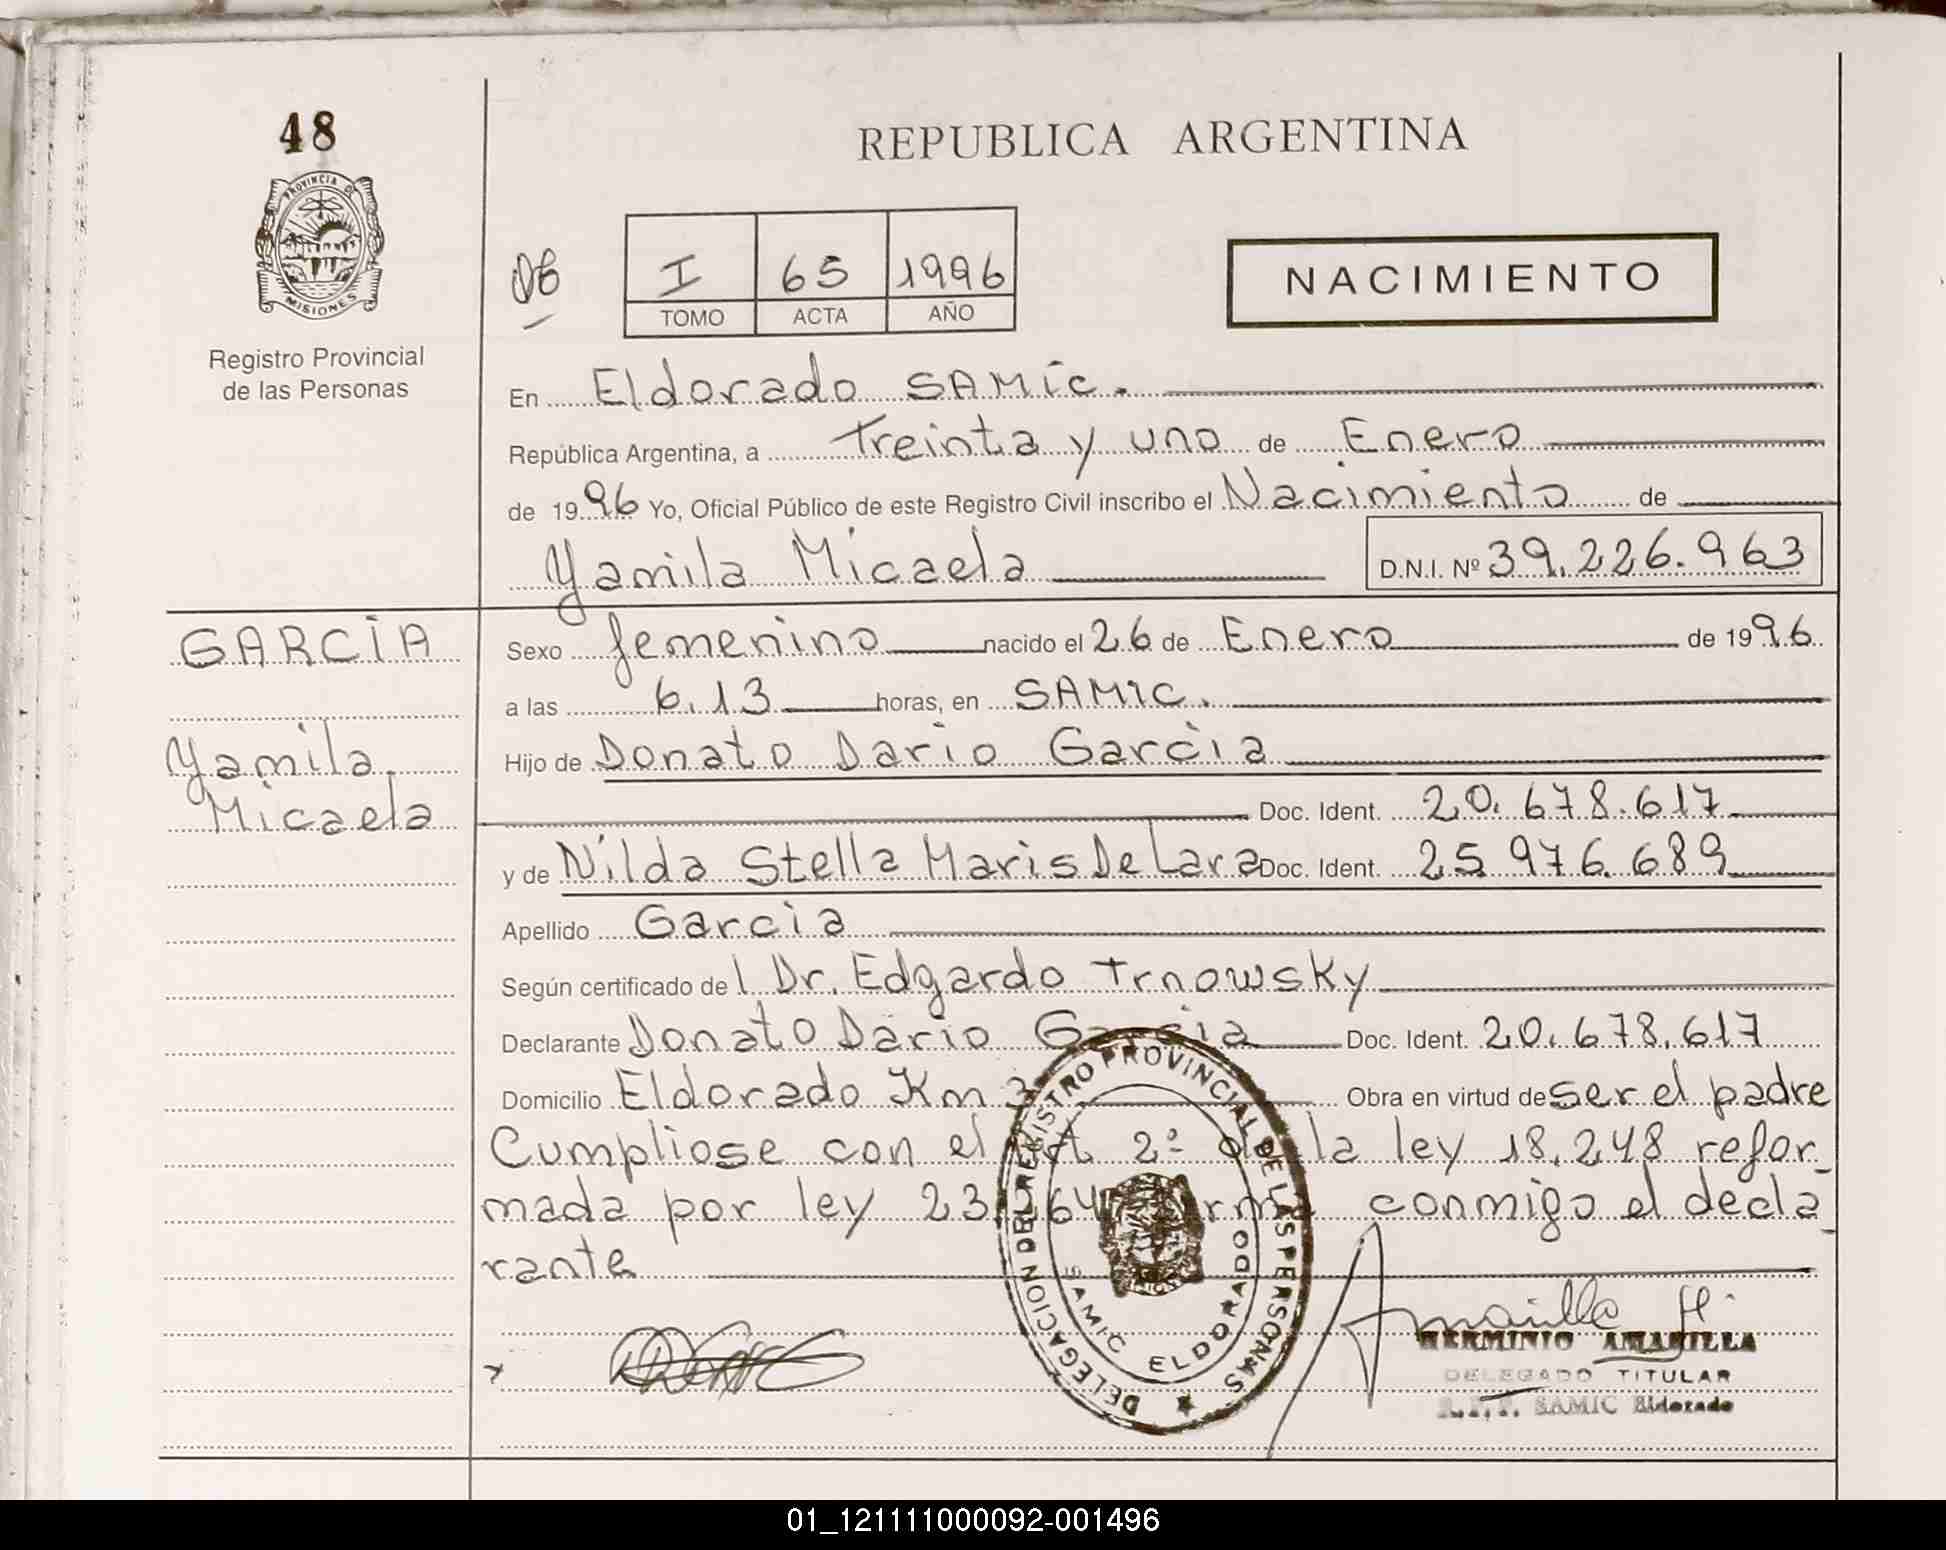 48
PROVINCIA DE
MISIONES
Registro Provincial
de las Personas
REPUBLICA ARGENTINA
06
I 65 1996
TOMO ACTA AÑO
NACIMIENTO
En Eldorado SAMic.
República Argentina, a Treinta y uno de Enero
de 1996 Yo, Oficial Público de este Registro Civil inscribo el Nacimiento de
Yamila Micaela D.N.I. Nº 39.226.963
GARCÍA
Yamila
Micaela
Sexo femenino nacido el 26 de Enero de 1996
a las 6.13 horas, en SAMIC.
Hijo de Donato Dario Garcìa
Doc. Ident. 20.678.617
y de Nilda Stella Maris De Lara Doc. Ident. 25.976.689
Apellido Garcìa
Según certificado del Dr. Edgardo Trnowsky
Declarante Donato Dario Garcia Doc. Ident. 20.678.617
Domicilio Eldorado Km 3 Obra en virtud de ser el padre
Cumpliose con el Art 2º de la ley 18.248 refor_
mada por ley 23. conmigo el decla_
rante
DELEGACION DEL REGISTRO PROVINCIAL DE LAS PERSONAS
SAMIC ELDORADO
Amarilla H.
HERMINIO AMARILLA
DELEGADO TITULAR
R.P.P. SAMIC Eldorado
01_121111000092-001496